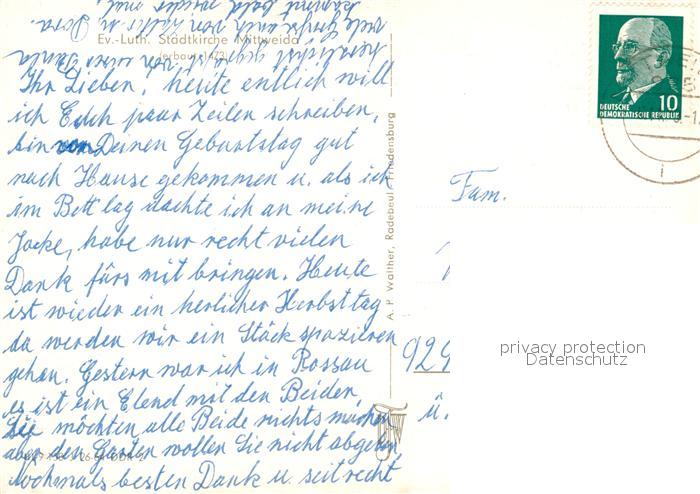 Ev.-Luth. Städtkirche Mittweida
erbaut 1473
Ihr Lieben, heute entlich will
ich Euch paar Zeilen schreiben,
bin von Deinen Geburtstag gut
nach Hause gekommen u. als ich
im Bett lag dachte ich an meine
Jacke, habe nur recht vielen
Dank fürs mit bringen. Heute
ist wieder ein herlicher Herbsttag
da werden wir ein Stück spazieren
gehen. Gestern war ich in Rossau
es ist ein Elend mit den Beiden
Sie möchten alle Beide nichts machen
aber den Garten wollen Sie nicht abgeben
Nochmals besten Dank u. seit recht
herzlichst gegrüßt von
viele Grüße auch von
kommt bald wieder mal.
A. P. Walther, Radebeul-Friedensburg
10
DEUTSCHE
DEMOKRATISCHE REPUBLIK
Fam.
929
ü.
privacy protection
Datenschutz